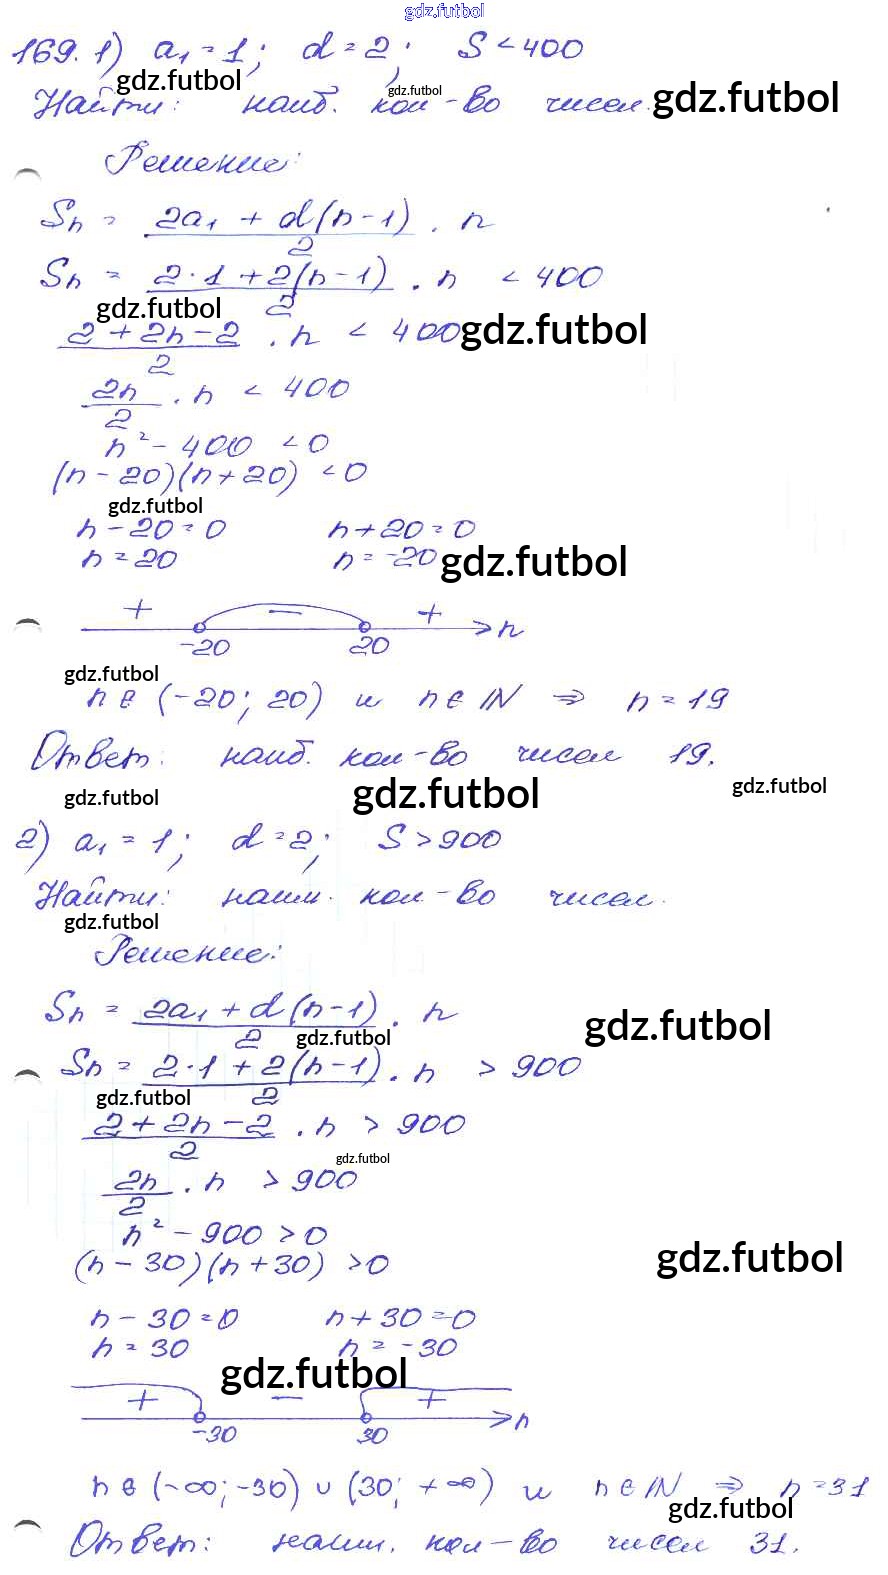 gdz.futbol
169. 1) a₁ = 1; d = 2; S < 400
gdz.futbol
Найти: наиб. кол-во чисел.
gdz.futbol
gdz.futbol
Решение:
Sn = (2a₁ + d(n-1))/2 · n
Sn = (2·1 + 2(n-1))/2 · n < 400
gdz.futbol
(2 + 2n - 2)/2 · n < 400
gdz.futbol
2n/2 · n < 400
n² - 400 < 0
(n - 20)(n + 20) < 0
gdz.futbol
n - 20 = 0 n + 20 = 0
n = 20 n = -20
gdz.futbol
+ − +
-20 20 n
gdz.futbol
n ∈ (-20; 20) и n ∈ N ⇒ n = 19
Ответ: наиб. кол-во чисел 19.
gdz.futbol
gdz.futbol
gdz.futbol
2) a₁ = 1; d = 2; S > 900
Найти: наим. кол-во чисел.
gdz.futbol
Решение:
Sn = (2a₁ + d(n-1))/2 · n
gdz.futbol
gdz.futbol
Sn = (2·1 + 2(n-1))/2 · n > 900
gdz.futbol
(2 + 2n - 2)/2 · n > 900
gdz.futbol
2n/2 · n > 900
n² - 900 > 0
(n - 30)(n + 30) > 0
gdz.futbol
n - 30 = 0 n + 30 = 0
n = 30 n = -30
gdz.futbol
+ − +
-30 30 n
n ∈ (-∞; -30) ∪ (30; +∞) и n ∈ N ⇒ n = 31
gdz.futbol
Ответ: наим. кол-во чисел 31.